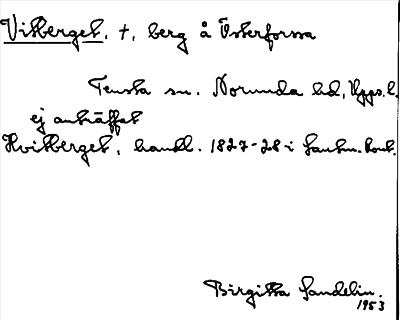 Vitberget, +, berg å Österforsa
Tensta sn. Norunda hd, Upps. l.
ej anträffat
Hvitberget, handl. 1827-28 i Lantm. kont.
Birgitta Sandelin.
1953